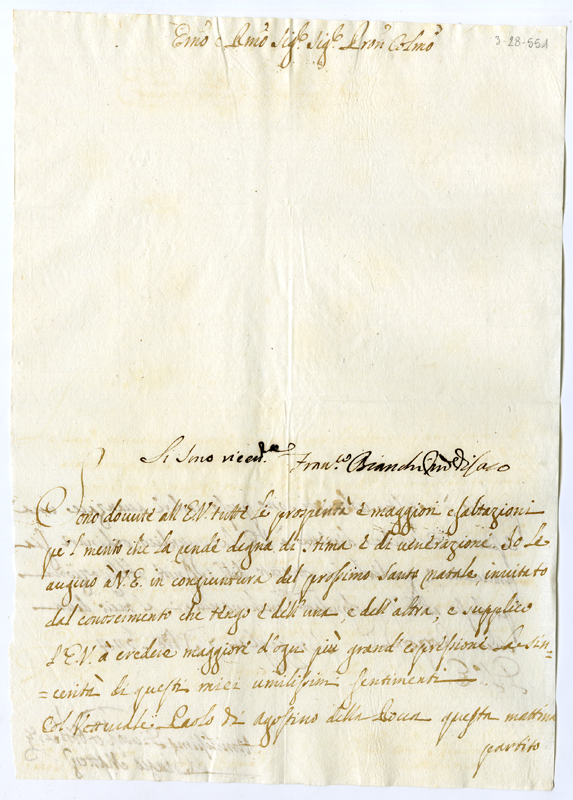 Emō e Rmō Sig.e Sig.e Pron Colmō
3-28-551
Si sono
Fran.co Bianchi
Sono dovute all'E.V. tutte le prosperità e maggiori esaltazioni
pe'l merito che la rende degna di stima è di venerazione. Io le
auguro à V.E. in congiuntura del prossimo santo natale invitato
dal conoscimento che tengo è dell'una, e dell'altra, e supplico
l'E.V. à credere maggiori d'ogni più grand'espressione le sin=
=cerità di questi miei umilissimi sentimenti
Col Vetturale Paolo di Agostino della Rocca questa mattina
partito